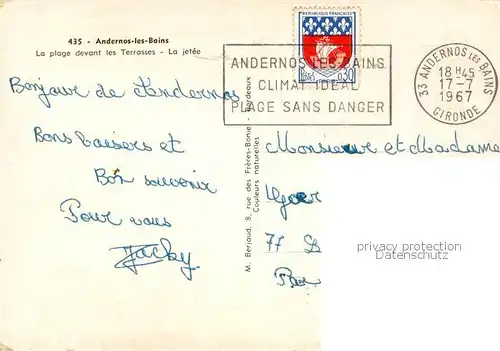 435 - Andernos-les-Bains
La plage devant les Terrasses - La jetée
RÉPUBLIQUE FRANÇAISE
0,30
ANDERNOS LES BAINS
CLIMAT IDÉAL
PLAGE SANS DANGER
33 ANDERNOS LES BAINS
18 H45
17-7
1967
GIRONDE
Bonjour de Andernos
Bons baisers et
Bon souvenir
Pour vous
Jacky.
M. Berjaud, 8, rue des Frères-Bonie - Bordeaux
Couleurs naturelles
Monsieur et Madame
77
privacy protection
Datenschutz